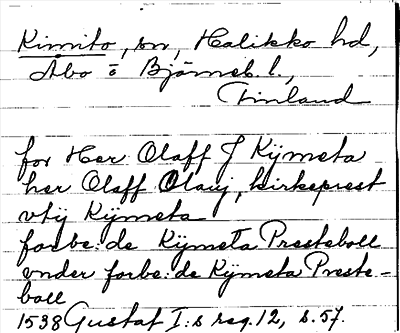 Kimito, sn, Halikko hd,
Åbo o Björneb. l.,
Finland
for Her Olaff J Kijmeta
her Olaff Olauj, kirkeprest
vtij Kijmeta
forbe: de Kijmeta Presteboll
vnder forbe: de Kijmeta Preste-
boll
1538 Gustaf I:s reg. 12, s. 57.